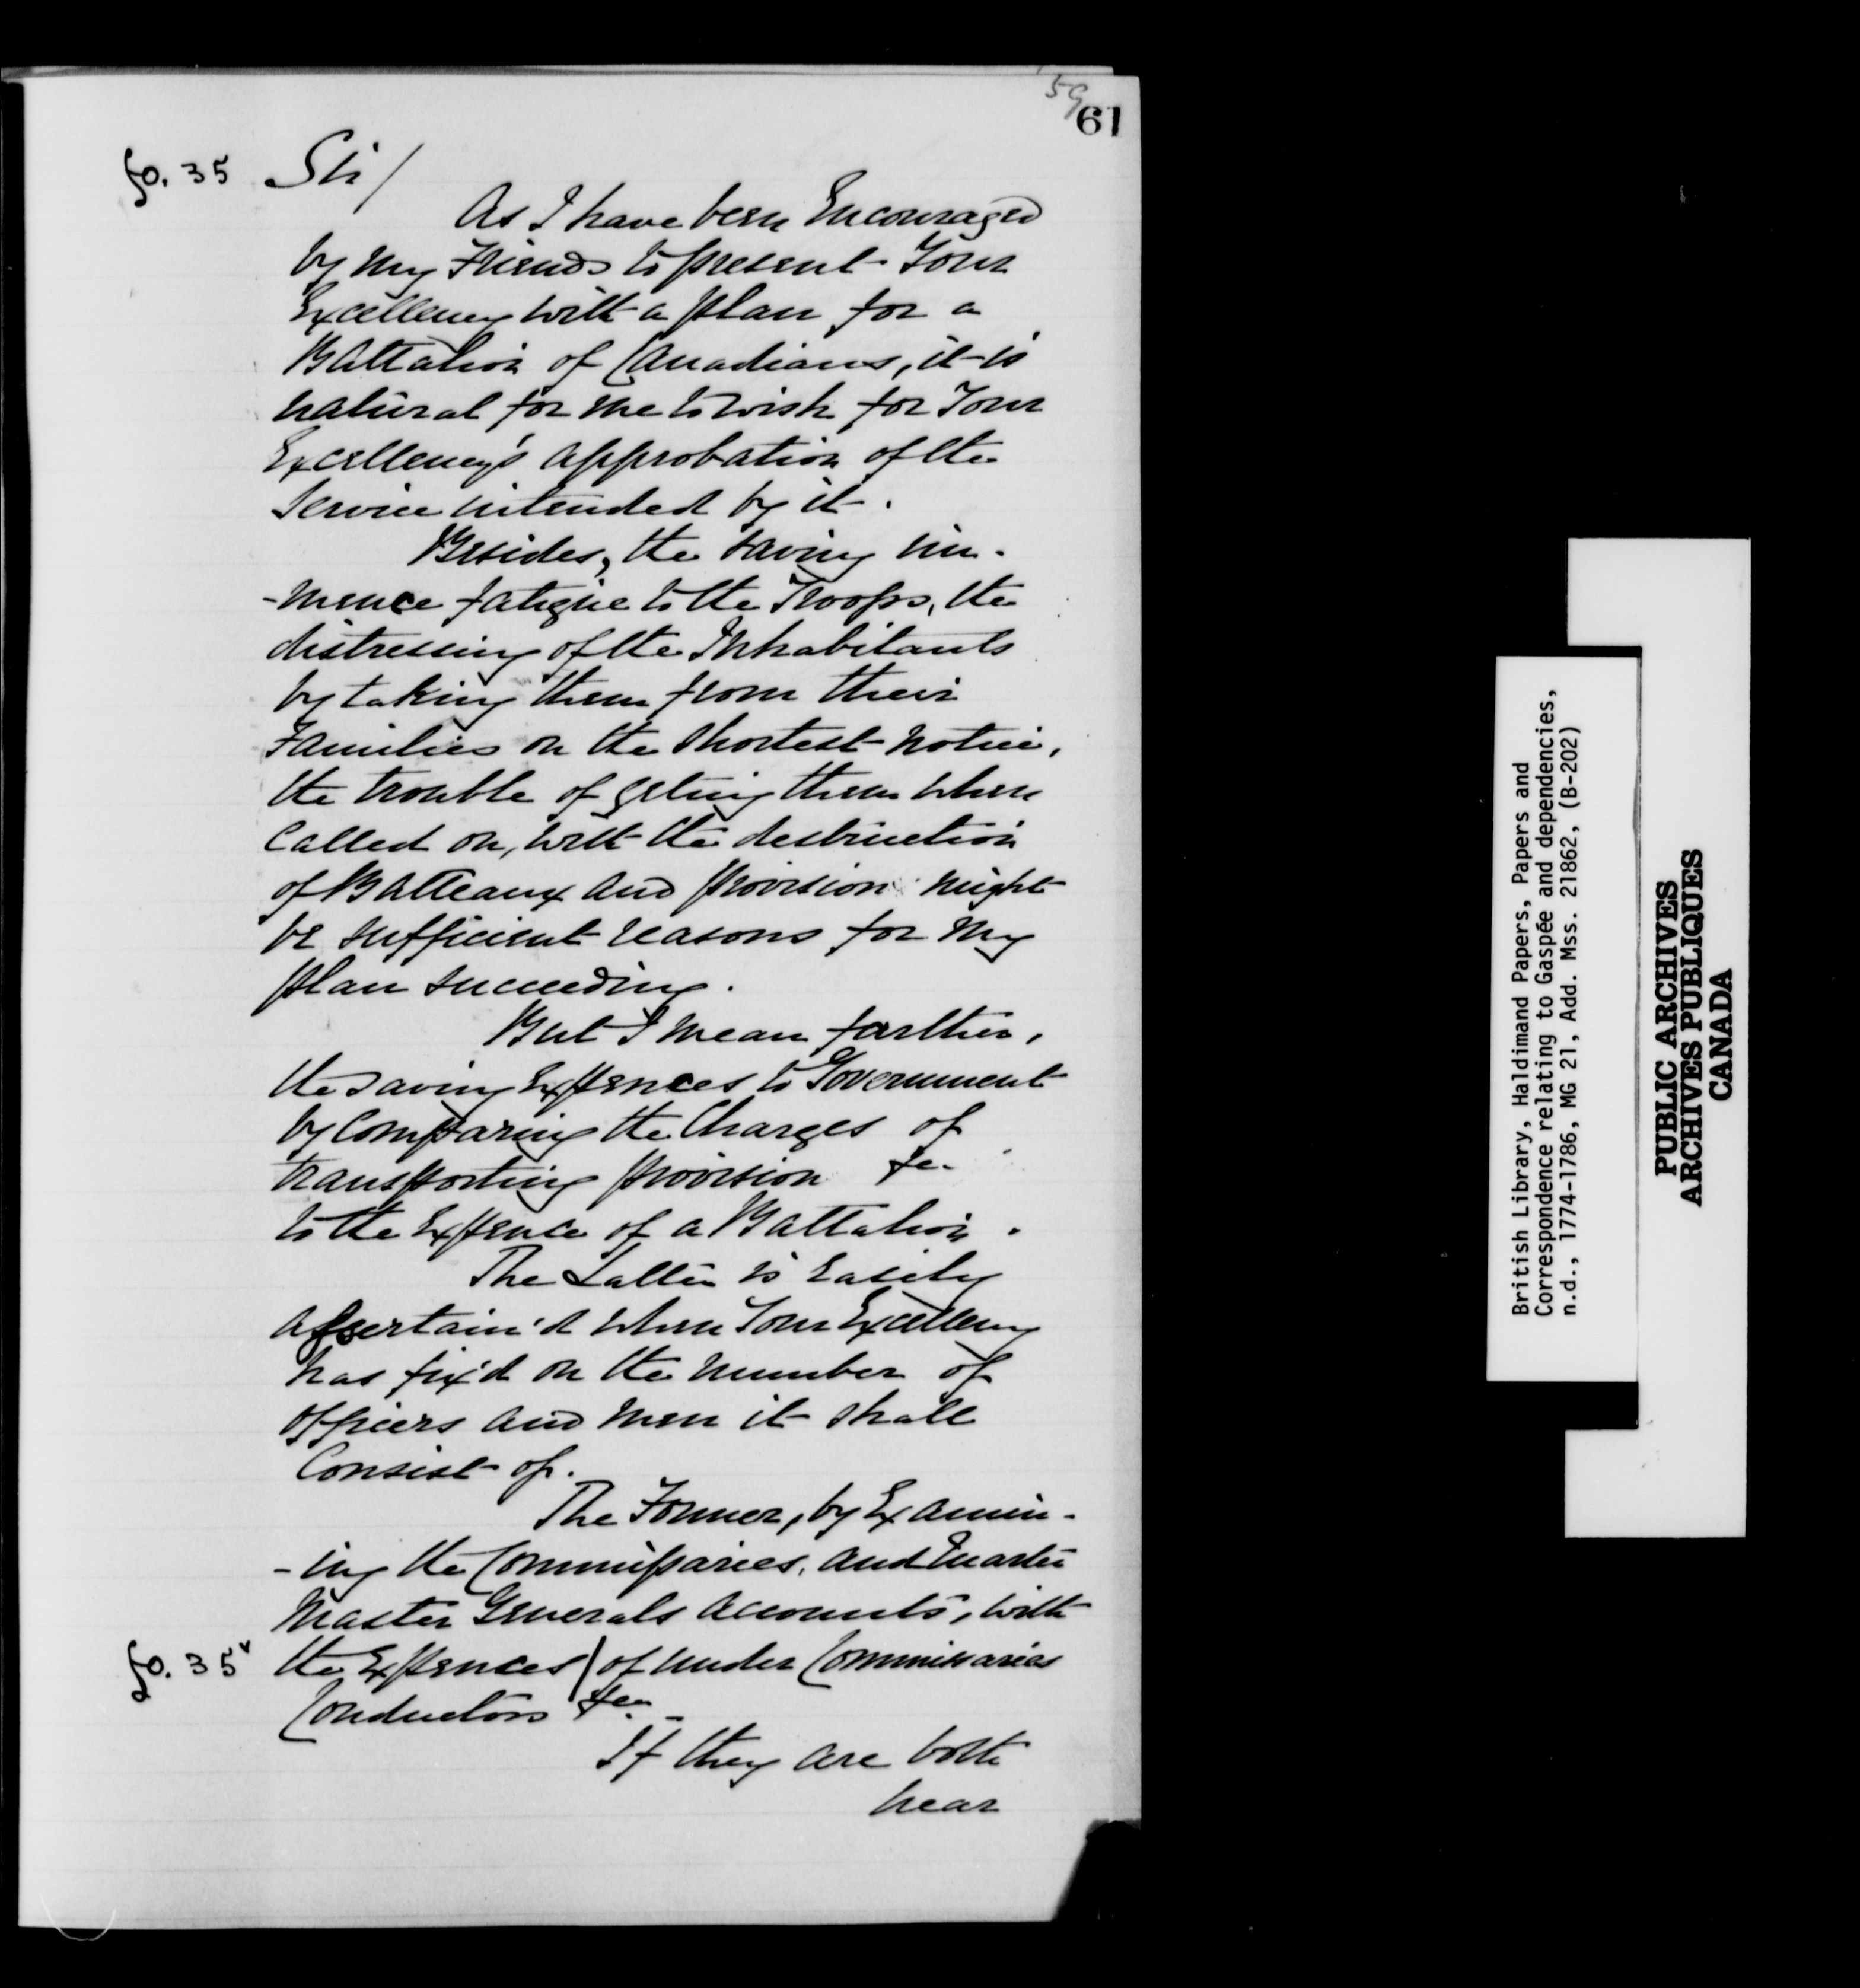 59
61
fo. 35 Sir/
As I have been Encouraged
by my Friends to present Your
Excellency with a plan for a
Battalion of Canadians, it is
natural for me to wish for Your
Excellency's approbation of the
Service intended by it.
Besides, the saving im-
-mence fatigue to the Troops, the
distressing of the Inhabitants
by taking them from their
Families on the shortest notice,
the trouble of geting them when
Called on, with the destruction
of Batteaux and provision might
be sufficient reasons for my
plan succeeding.
But I mean farther,
the saving Expences to Government
by Comparing the Charges of
transporting provision &c
to the Expence of a Battalion.
The Latter is Easily
assertain'd when Your Excellency
has fix'd on the number of
officers and men it shall
Consist of.
The Former, by Examin-
-ing the Commissaries, and Quarter
Master Generals accounts, with
fo. 35v the Expences/of under Commissaries
Conductors &c. -
If they are both
near
British Library, Haldimand Papers, Papers and
Correspondence relating to Gaspée and dependencies,
n.d., 1774-1786, MG 21, Add. Mss. 21862, (B-202)
PUBLIC ARCHIVES
ARCHIVES PUBLIQUES
CANADA